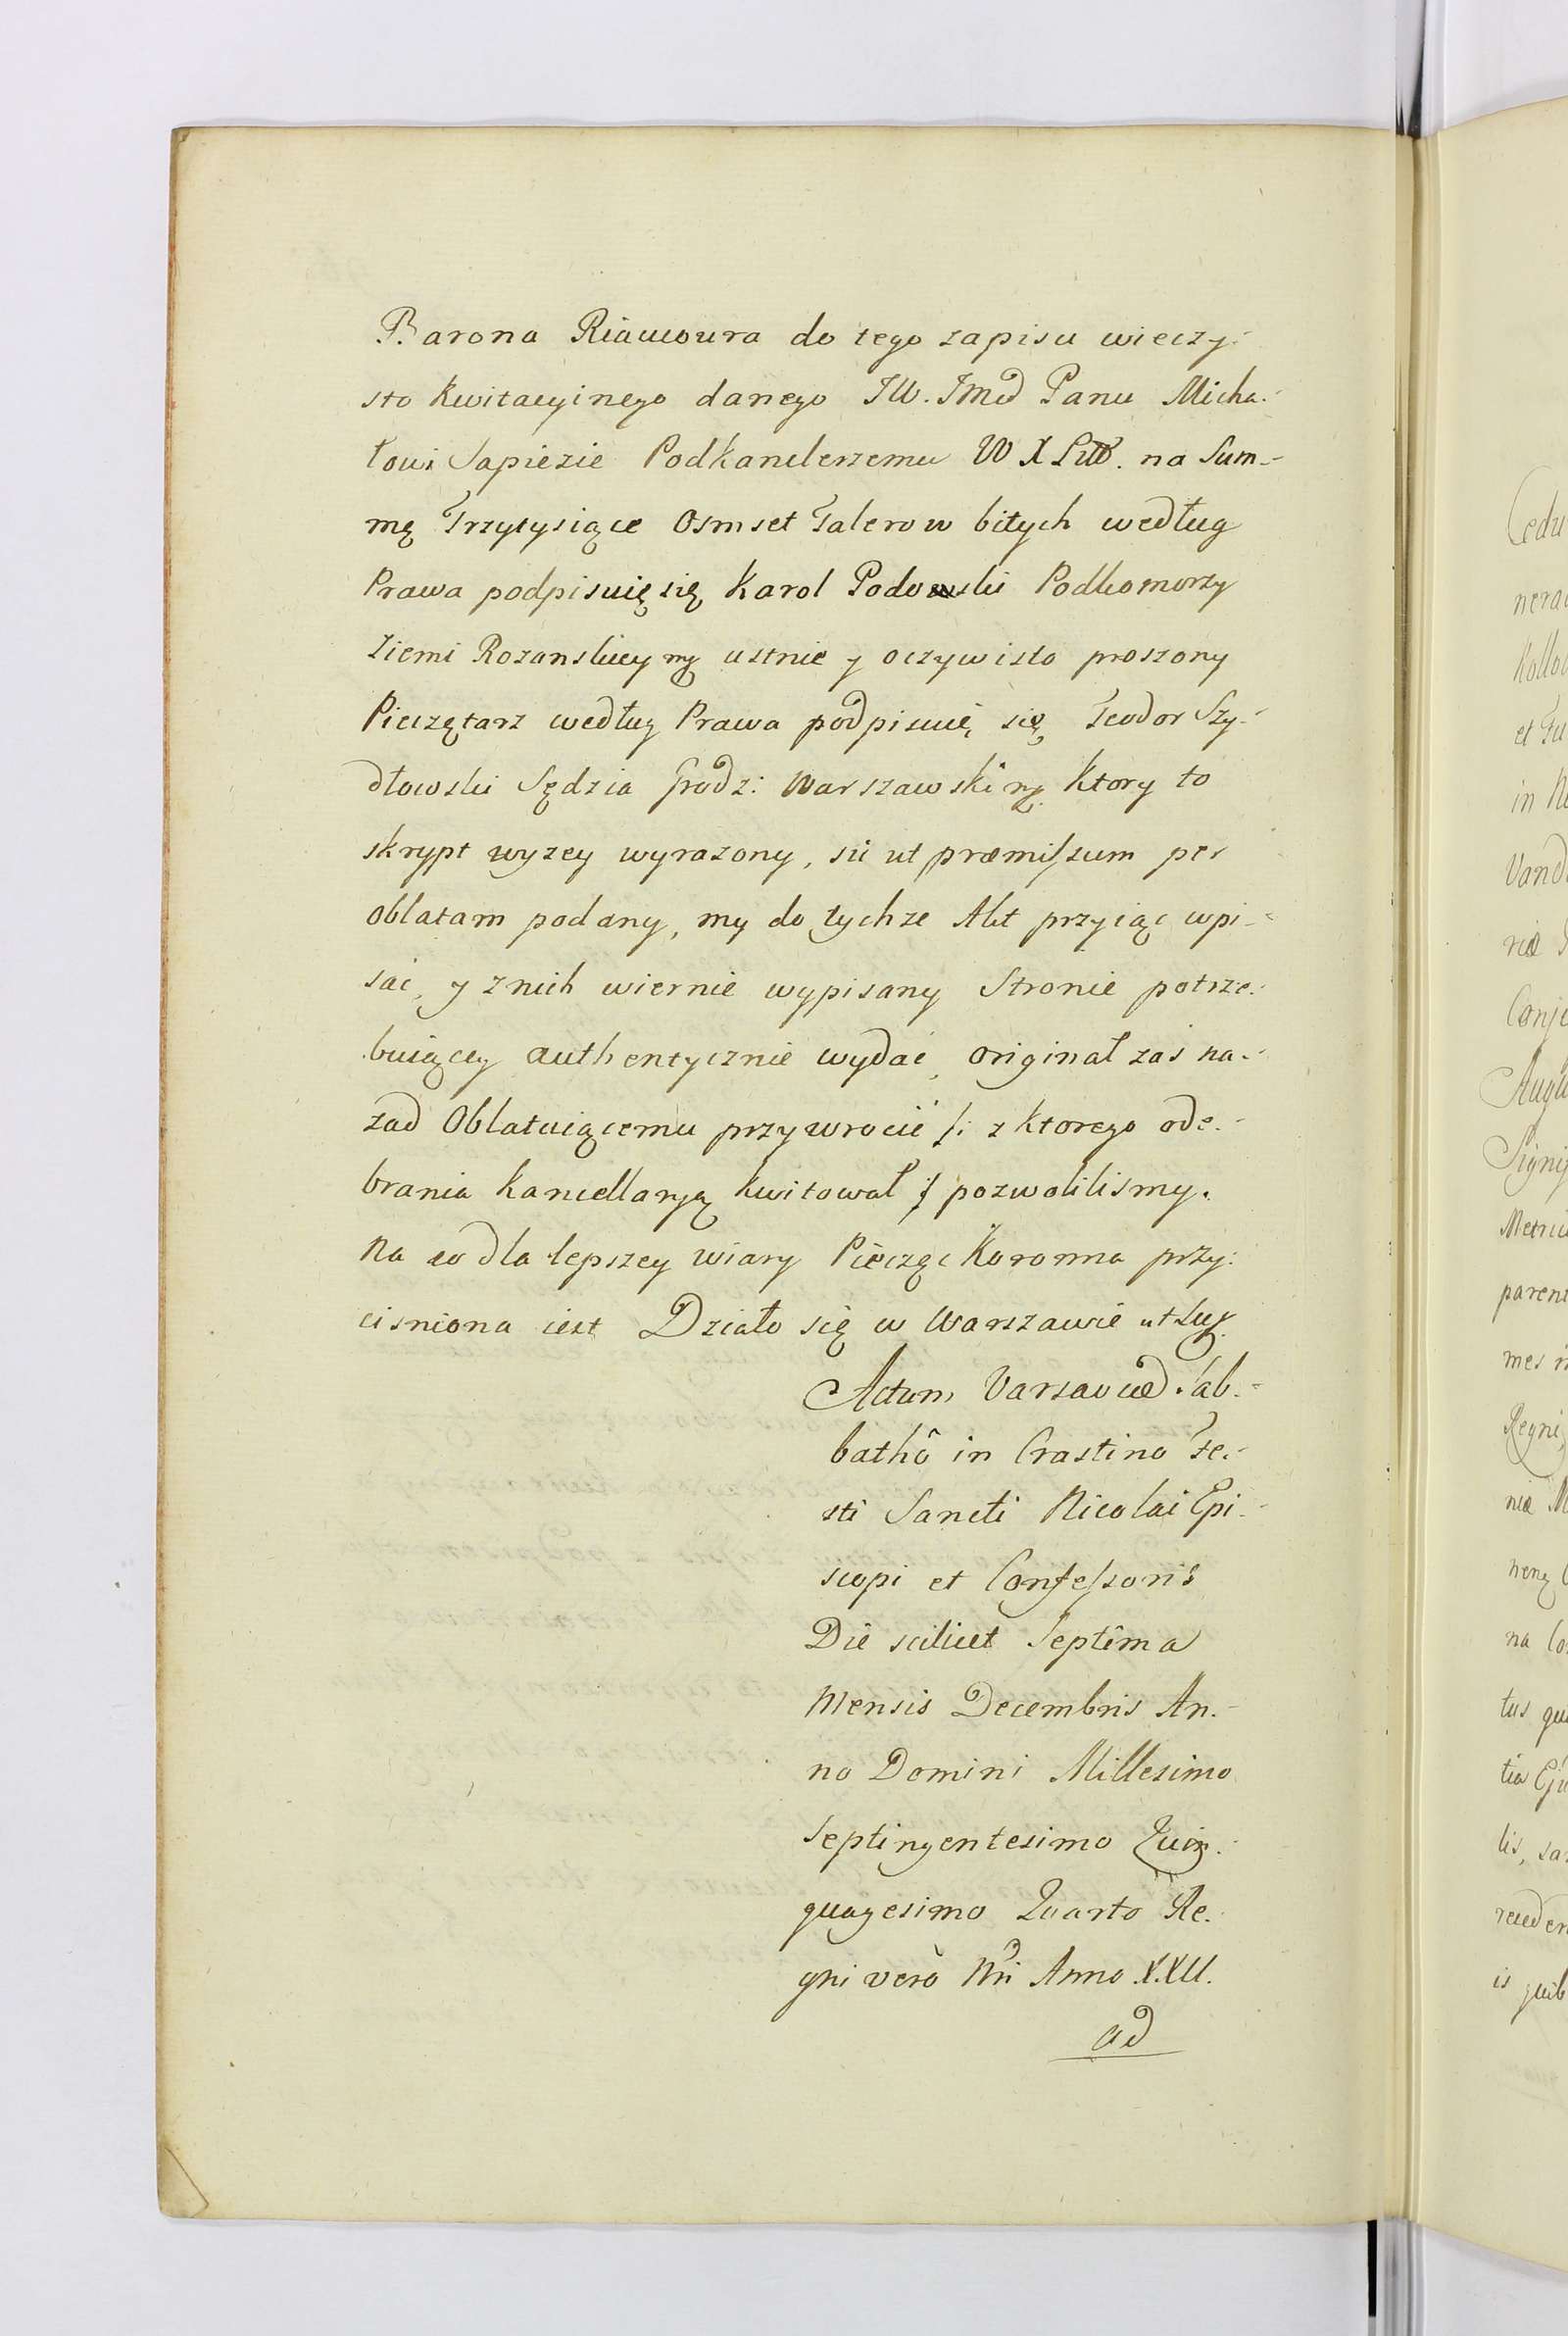 Barona Riaucoura do tego zapisu wieczy:
sto kwitacyinego danego JW. Jmć Panu Micha-
łowi Sapiezie Podkanclerzemu W X Litt. na Sum-
mę Trzytysiące Osmset Talerow bitych według
Prawa podpisuię się Karol Podowski Podkomorzy
Ziemi Rozanskiey mp ustnie y oczywisto proszony
Pieczętarz według Prawa podpisuię się Teodor Szy-
dłowski Sędzia Grodz: Warszawski mp. Ktory to
skrypt wyzey wyrazony, sic ut præmissum per
oblatam podany, my do tychze Akt przyiąc wpi-
sać, y znich wiernie wypisany Stronie potrze-
buiącey authentycznie wydać, originał zaś na-
zad Oblatuiącemu przywrocić /: z ktorego ode-
brania kancellaryą kwitował :/ pozwolilismy.
Na co dla lepszey wiary Pieczęć Koronna przy:
cisniona iest Działo się w Warszawie ut sup.
Actum Varsaviæ Sab-
bathô in Crastino Fe-
sti Sancti Nicolai Epi-
scopi et Confessoris
Die scilicet Septima
Mensis Decembris An-
no Domini Millesimo
Septingentesimo Quin-
quagesimo Quarto Re-
gni verò Nri Anno XXII.
ad
Cedu
et Fu
Vand
Augu
parent
Regni
tus